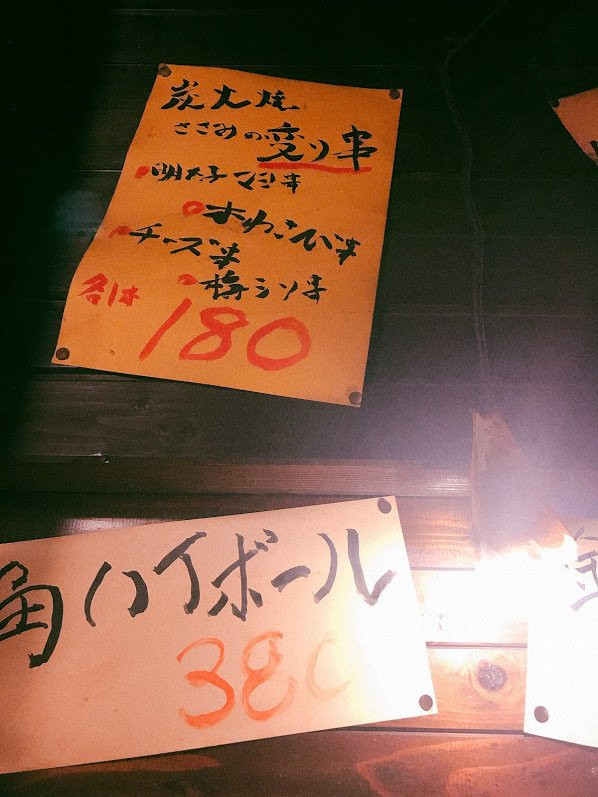 炭火焼
ささみの変り串
明太子マヨ串
本わさび串
チーズ串
梅シソ串
各1本
180
角ハイボール
380